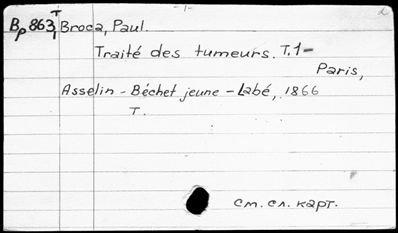 -1-
Bp 863 T/1 Broca, Paul.
Traité des tumeurs. T.1-
Paris,
Asselin - Béchet jeune - Labé, 1866
T.
см. сл. карт.